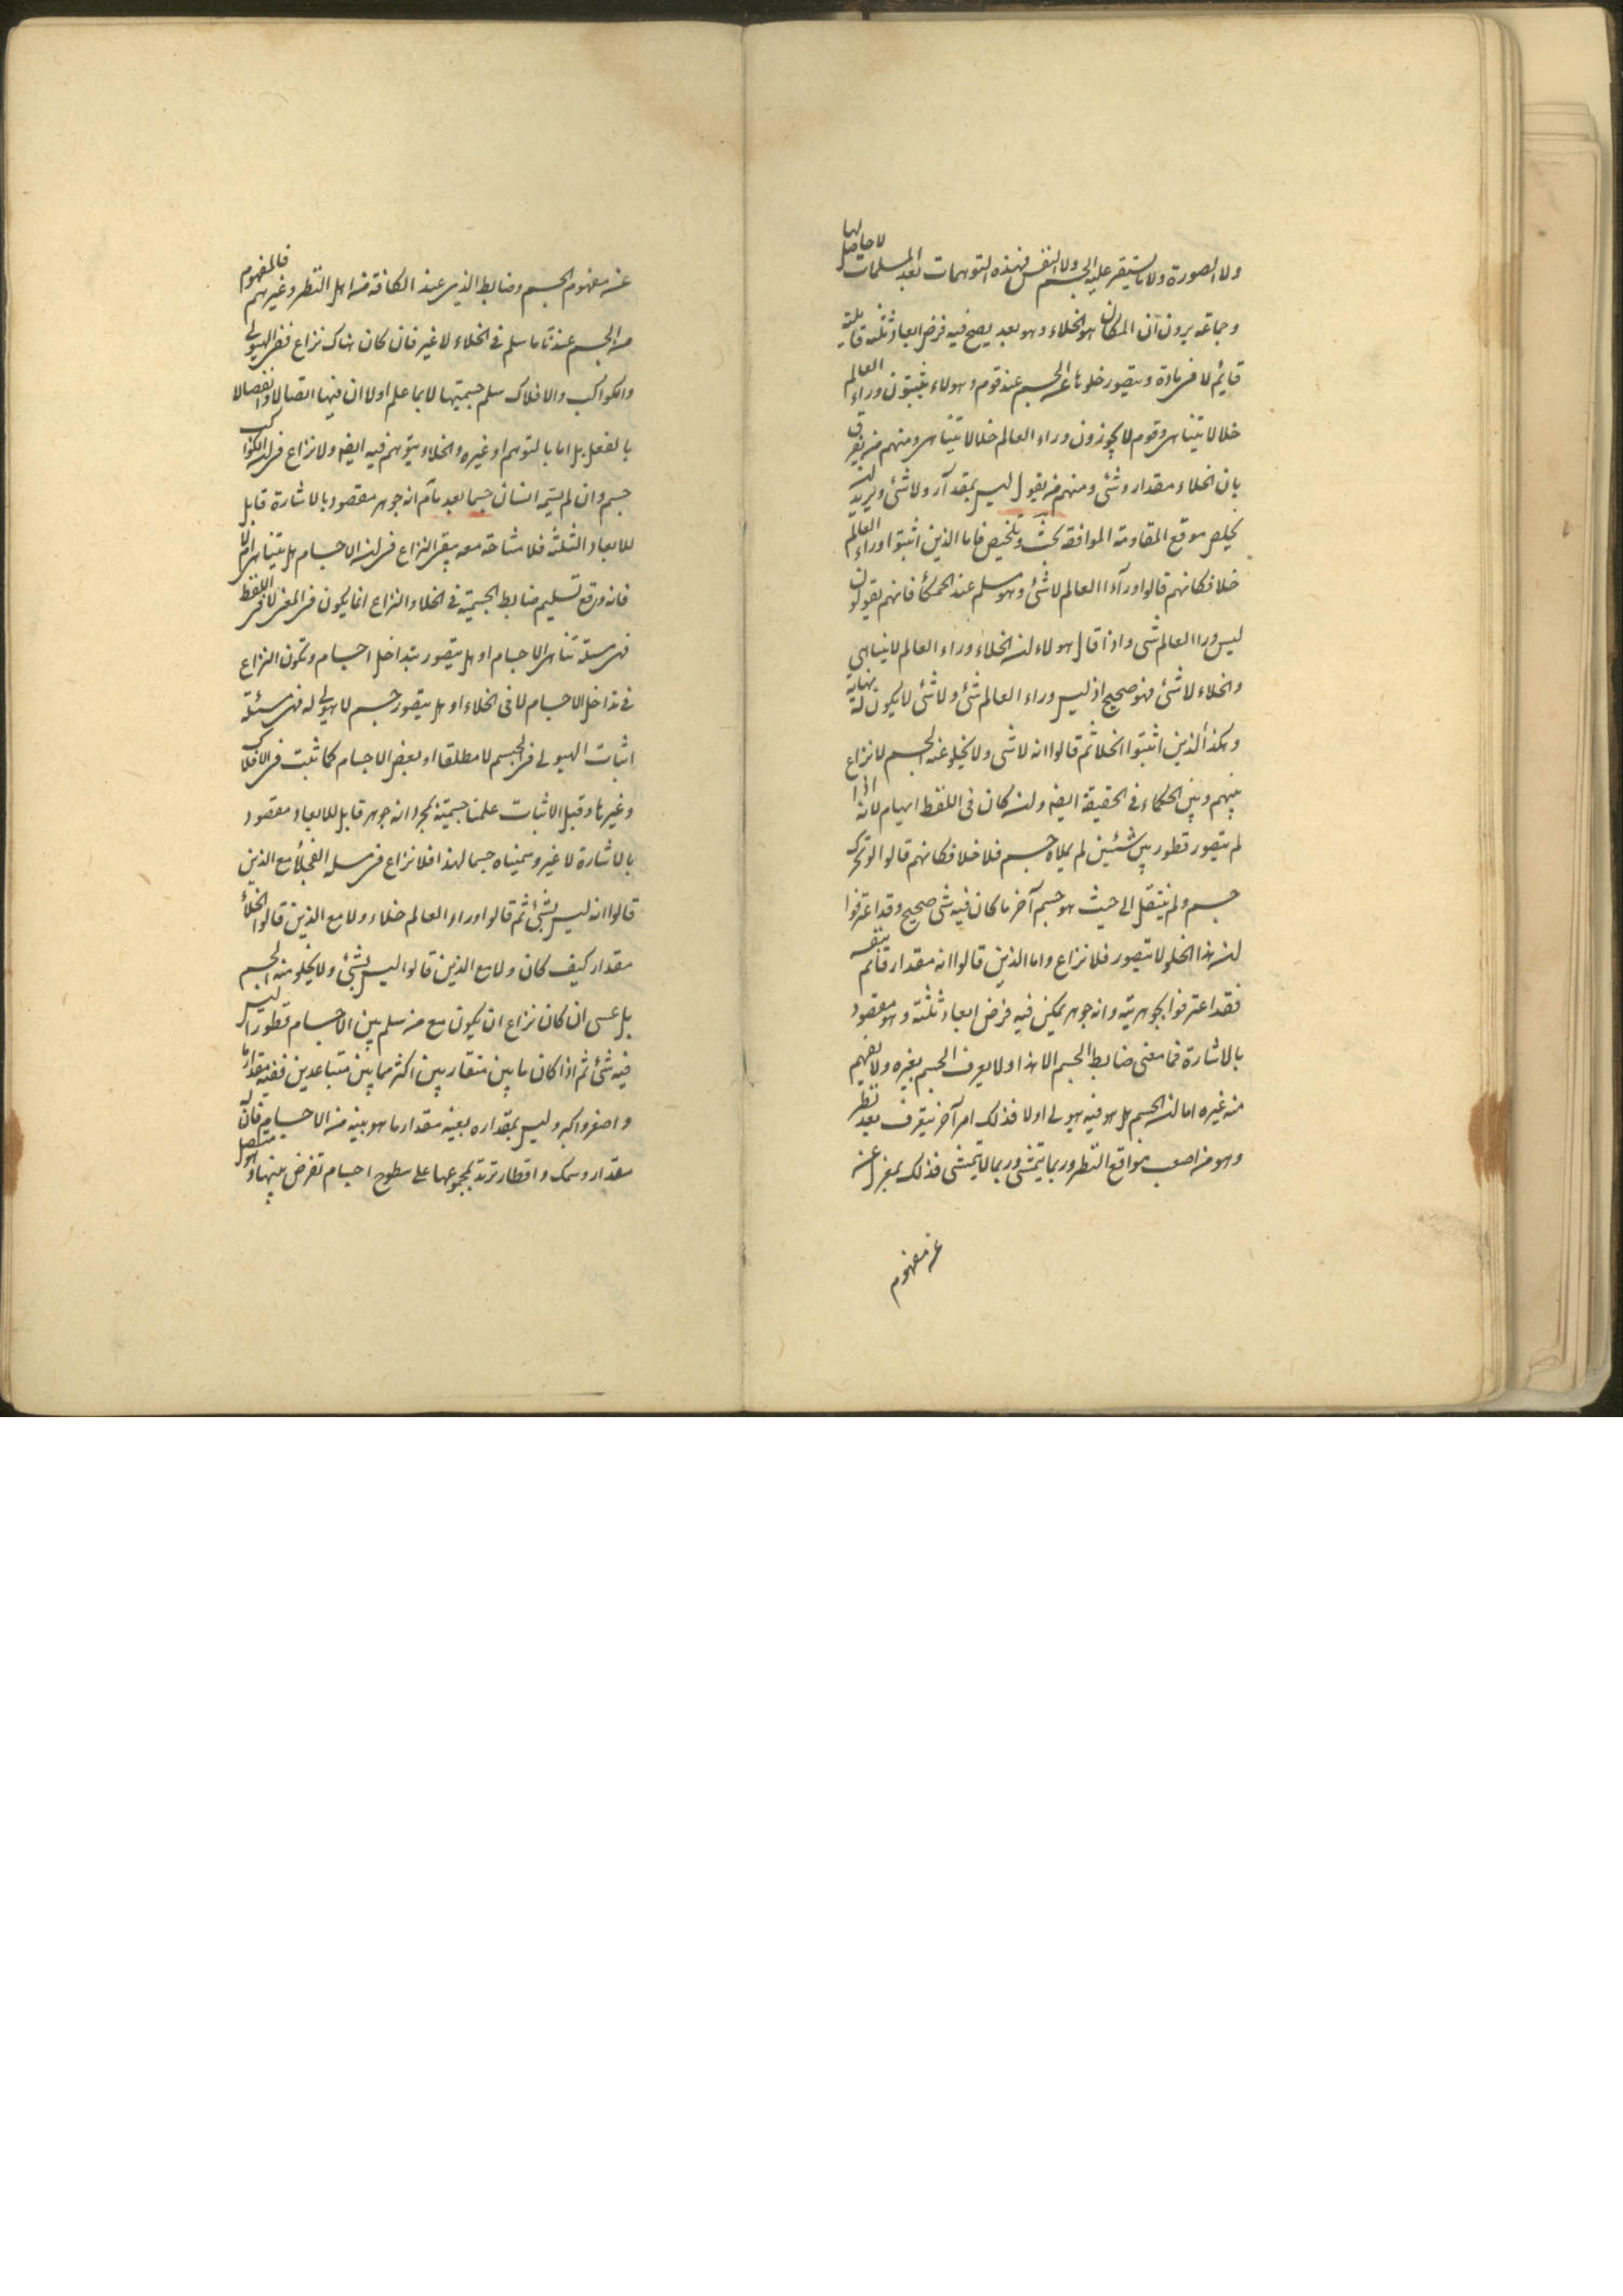 ولا الصورة ولا ما يستقر عليه الجسم ولا النفس فهذه التوهمات بعد المسلمات لا حاصل لها
وجماعة يرون ان المكان هو الخلاء وهو بعد يصح فيه فرض ابعاد ثلثة قابلية
قايم لا فى مادة ويتصور خلوها عن الجسم عند قوم وهولاء يثبتون وراء العالم
خلا لا يتناهى وقوم لا يجوزون وراء العالم خلا لا يتناهى ومنهم من يفرق
بان الخلاء مقدار وشئ ومنهم من يقول ليس بمقدار ولا شئ ويريد ان
يخلص موقع المقاومة الموافقة بحث وتلخيص فاما الذين اثبتوا وراء العالم
خلا فكانهم قالوا وراء العالم لا شئ وهو مسلم عند الحكماء فانهم يقولون
ليس ورا العالم شى واذا قال هولاء ان الخلاء وراء العالم لا يتناهى
والخلاء لا شئ فهو صحيح اذ ليس وراء العالم شئ ولا شئ لا يكون له نهاية
وهكذا الذين اثبتوا الخلا ثم قالوا انه لا شى ولا يخلو عنه الجسم لا نزاع
بينهم وبين الحكماء فى الحقيقة ايضا وان كان فى اللفظ ايهام لانه اذا
لم يتصور قطور بين شئين لم يملاه جسم فلا خلا فكانهم قالوا لو تحرك
جسم ولم ينتقل الى حيث هو جسم آخر ما كان فيه شى صحيح وقد اعترفوا
ان هذا الخلو لا يتصور فلا نزاع واما الذين قالوا انه مقدار قائم بنفسه
فقد اعترفوا بجوهريته وانه جوهر يمكن فيه فرض ابعاد ثلثة وهو مقصود
بالاشارة فما معنى ضابط الجسم الا هذا ولا يعرف الجسم بغيره ولا يفهم
منه غيره اما ان الجسم هل هو فيه هيولى اولا فذلك امر آخر يتعرف بعد نظر
وهو من اصعب مواقع النظر وربما يتمشى وربما لا يتمشى فذلك بمعزل عنه
عن مفهوم
عن مفهوم الجسم وضابط الذى عند الكافة من اهل النظر وغيرهم فالمفهوم
من الجسم عندنا ما سلم فى الخلاء لا غير فان كان هناك نزاع ففى الهيولى
والكواكب والافلاك سلم جسميتها لا بما علم اولا ان فيها اتصالا وانفصالا
بالفعل بل اما بالتوهم او غيره والخلاء يتوهم فيه ايضا ولا نزاع فى ان الكواكب
جسم وان لم يسمه انسان جسما بعد ما تم انه جوهر مقصود بالاشارة قابل
للابعاد الثلثة فلا مشاحة معه بقى النزاع فى ان الاجسام هل يتناهى ام لا
فانه وقع تسليم ضابط الجسمية فى الخلا والنزاع انما يكون فى المعنى لا فى اللفظ
فهى مسئلة تناهى الاجسام او هل يتصور بتداخل اجسام وتكون النزاع
فى تداخل الاجسام لا فى الخلاء او هل يتصور جسم لا هيولى له فهى مسئلة
اثبات الهيولى فى الجسم لا مطلقا او بعض الاجسام كما ثبت فى الافلاك
وغيرها وقبل الاثبات علمنا جسميته بمجرد انه جوهر قابل للابعاد مقصود
بالاشارة لا غير وسميناه جسما لهذا فلا نزاع فى مسئلة الخلأ مع الذين
قالوا انه ليس بشئ ثم قالوا وراء العالم خلاء ولا مع الذين قالوا الخلأ
مقدار كيف كان ولا مع الذين قالوا ليس بشئ ولا يخلو منه الجسم
بل عسى ان كان نزاع ان يكون مع من سلم بين الاجسام قطورا ليس
فيه شئ ثم اذا كان ما بين متقاربين اكثر مما بين متباعدين ففيه مقدار ما
واصغر واكبر وليس بمقداره بعينه مقدار ما هو بينه من الاجسام فان له
مقدار وسمك واقطار ترتد بمجموعها على سطوح اجسام تفرض بينها وهو متصل